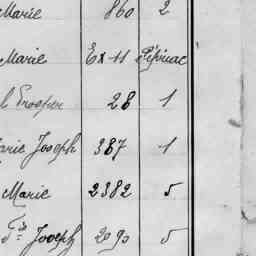 Marie 860 2
Marie Ex-11
Prosper 28 1
Marie Joseph 387 1
Marie 2382 5
Fois Joseph 2090 5